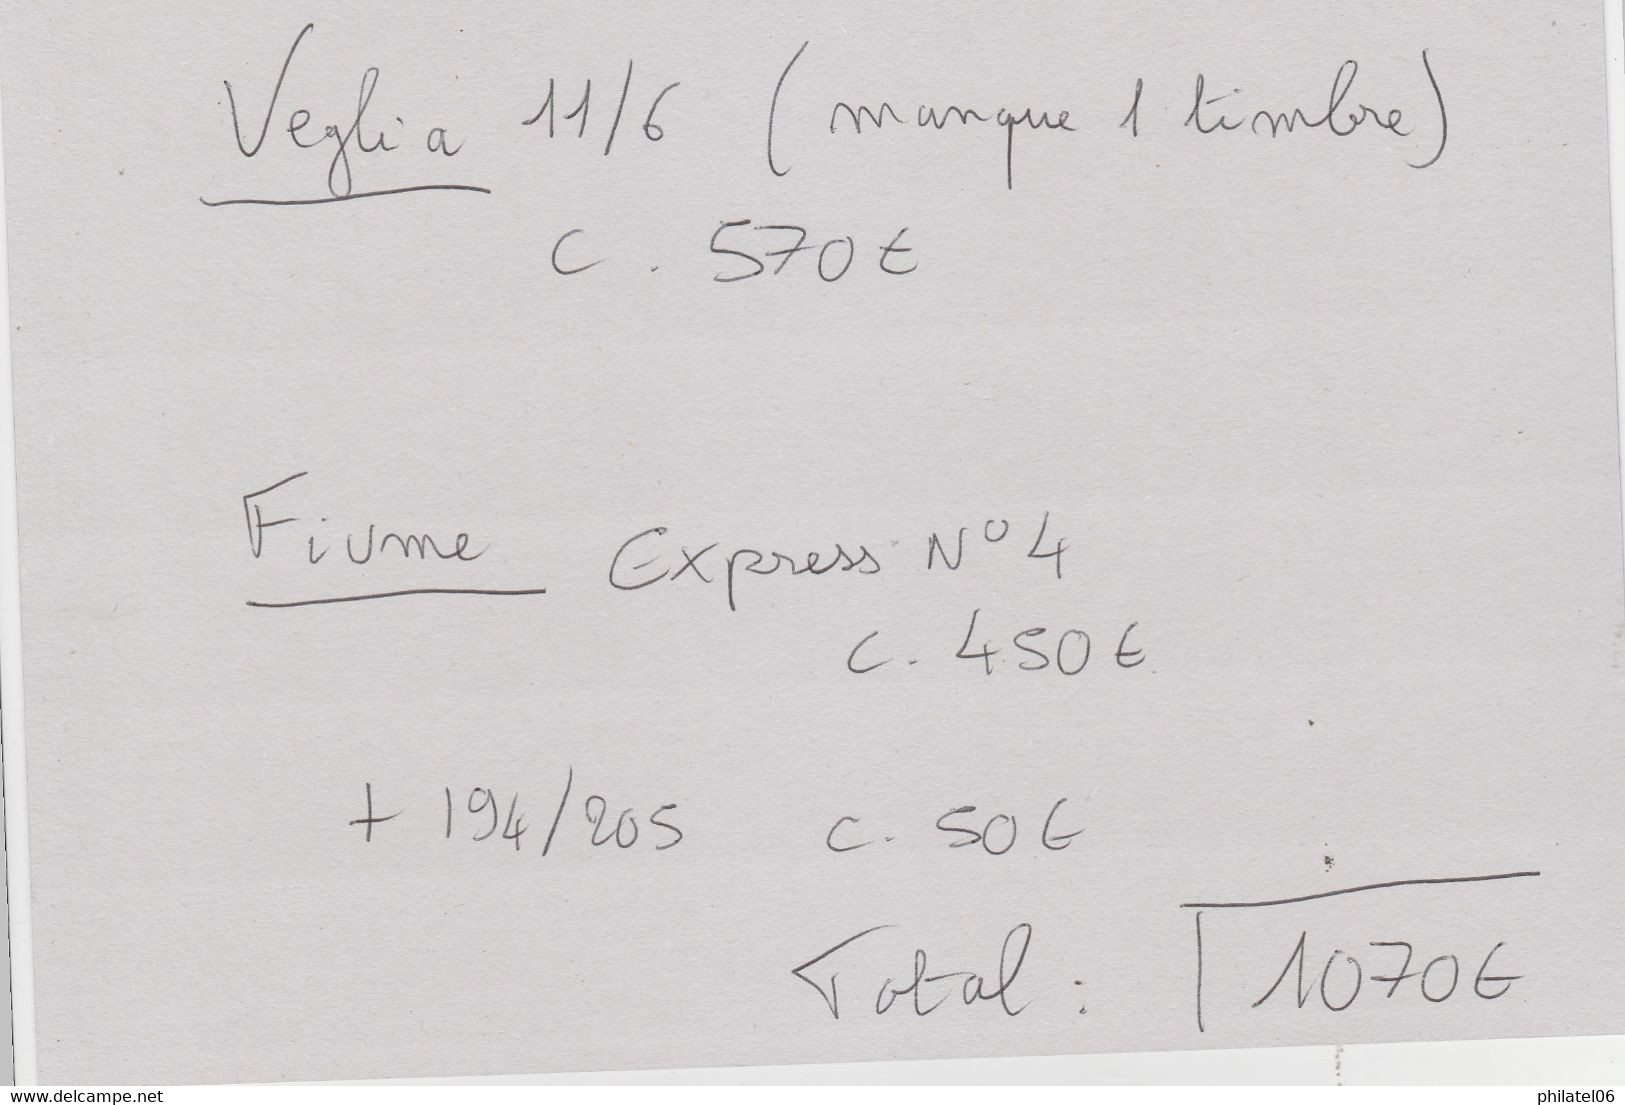 Veglia 11/6 (manque 1 timbre)
c. 570€
Fiume Express N°4
c. 450€
+ 194/205 c. 50€
Total : 1070€
www.delcampe.net philatel06